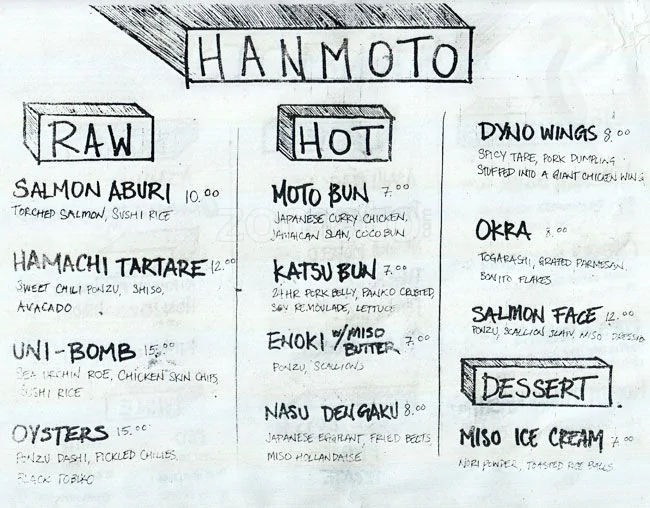 HANMOTO
RAW
SALMON ABURI 10.00
TORCHED SALMON, SUSHI RICE
HAMACHI TARTARE 12.00
SWEET CHILI PONZU, SHISO,
AVACADO
UNI-BOMB 15.00
SEA URCHIN ROE, CHICKEN SKIN CHIPS
SUSHI RICE
OYSTERS 15.00
PONZU DASHI, PICKLED CHILIES
BLACK TOBIKO
HOT
MOTO BUN 7.00
JAPANESE CURRY CHICKEN,
JAMAICAN SLAW, COCO BUN
KATSU BUN 7.00
24HR PORK BELLY, PANKO CRUSTED,
SOY REMOULADE, LETTUCE
ENOKI W/ MISO BUTTER 7.00
PONZU, SCALLIONS
NASU DENGAKU 8.00
JAPANESE EGGPLANT, FRIED BEETS
MISO HOLLANDAISE
DYNO WINGS 8.00
SPICY TARE, PORK DUMPLING
STUFFED INTO A GIANT CHICKEN WING
OKRA 8.00
TOGARASHI, GRATED PARMESAN,
BONITO FLAKES
SALMON FACE 12.00
PONZU, SCALLION SLAW, MISO DRESSING
DESSERT
MISO ICE CREAM 7.00
NORI POWDER, TOASTED RICE BALLS